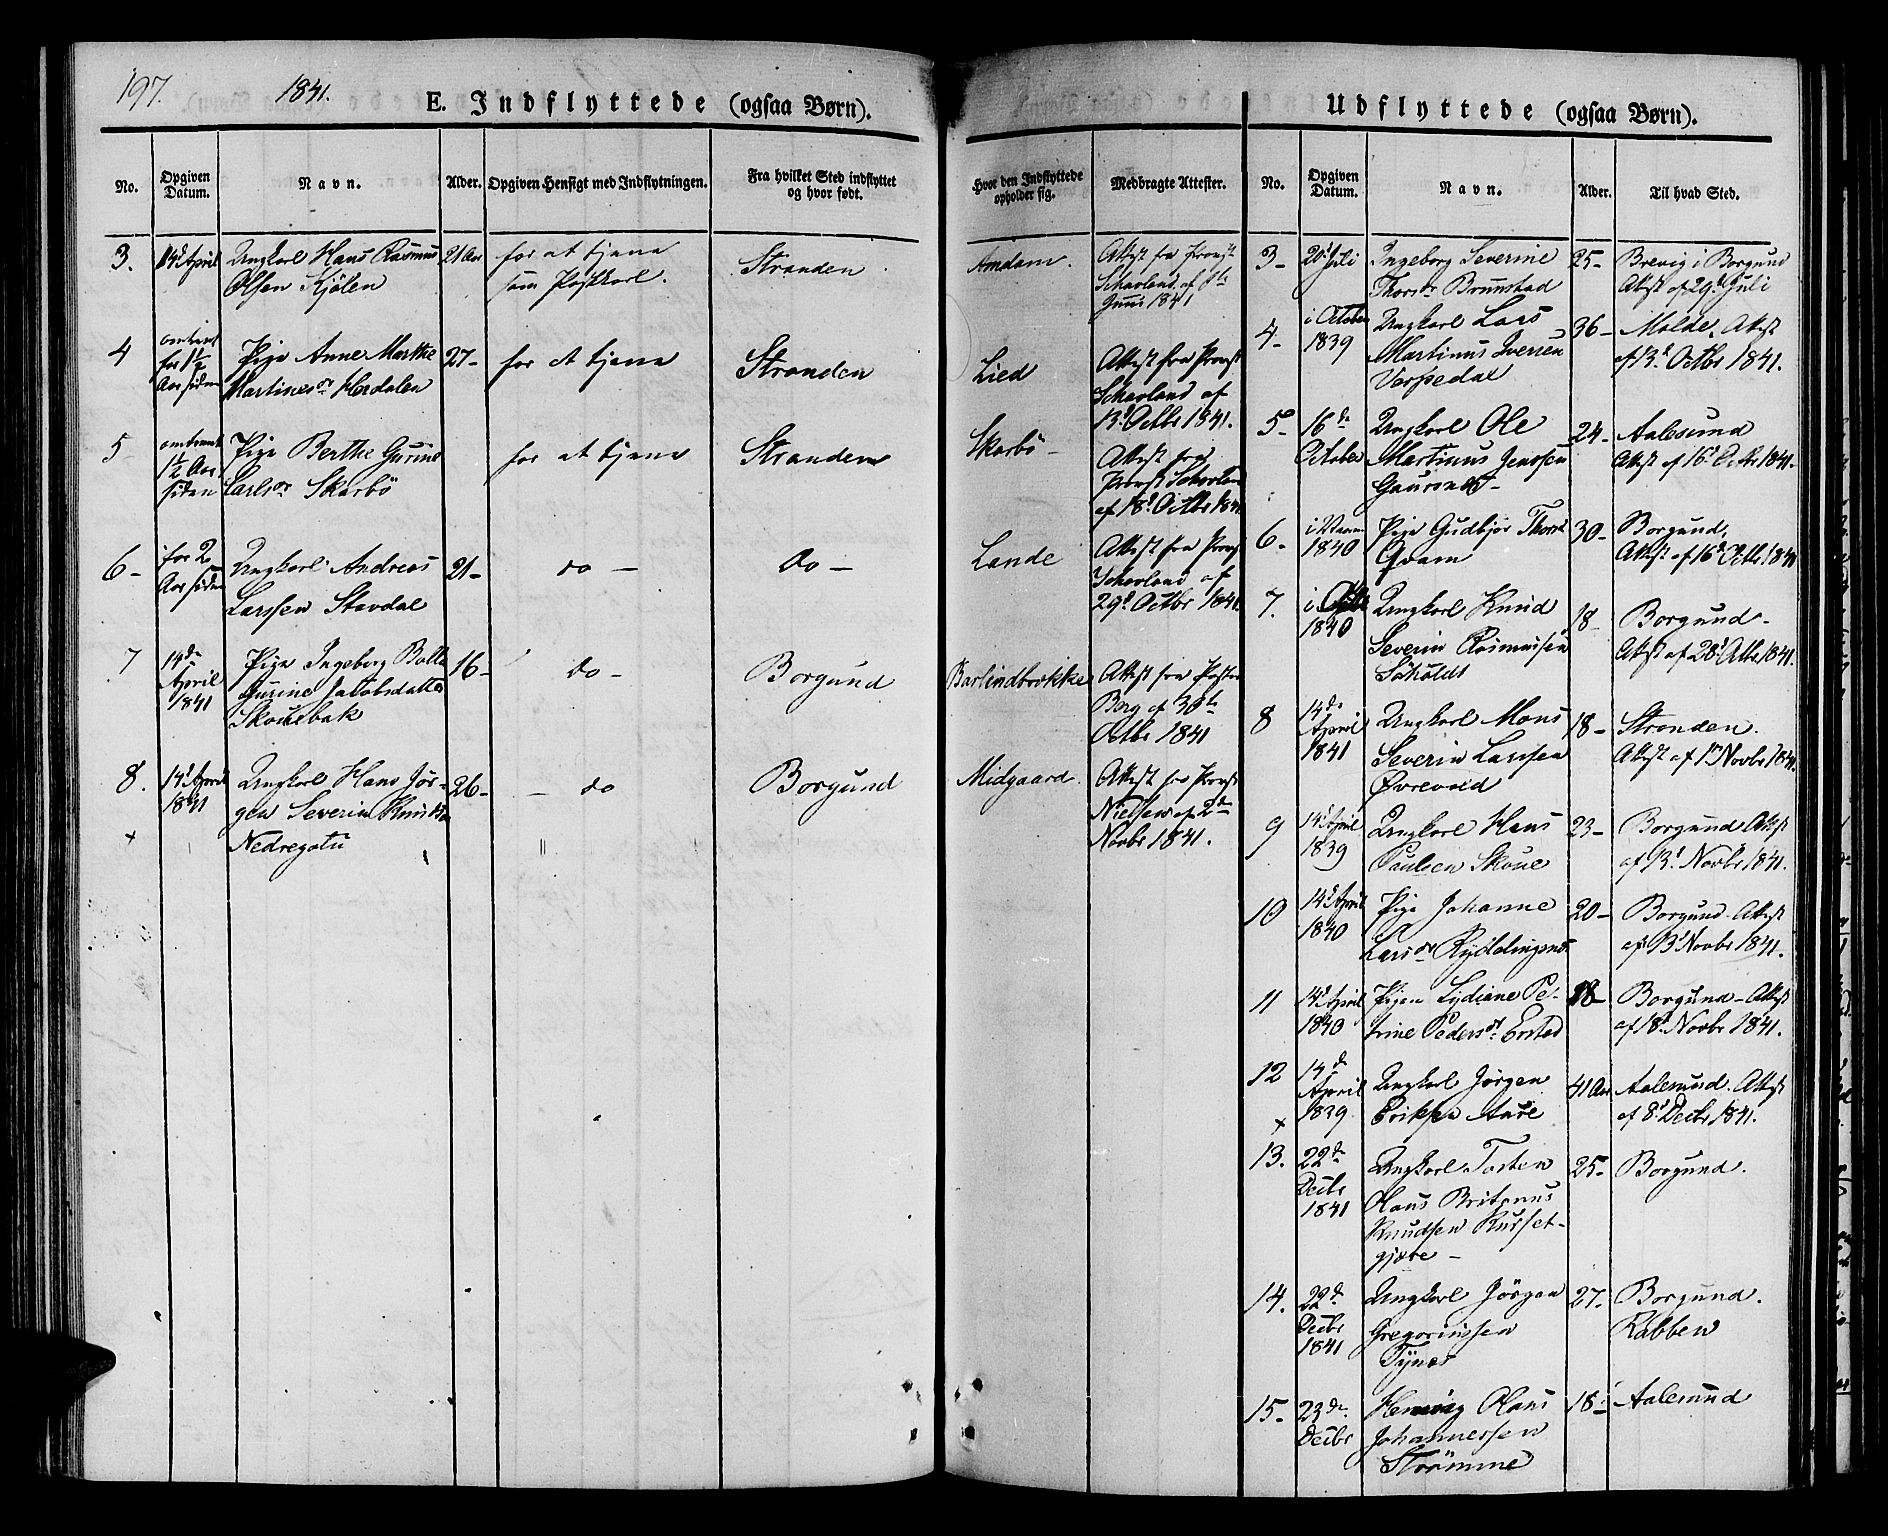 197. 1841. E. Indflyttede (ogsaa Børn).
No.
Opgiven Datum.
Navn.
Alder.
Opgiven Hensigt med Indflytningen.
Fra hvilket Sted indflyttet
og hvor født.
Hvor den Indflyttede
opholder sig.
Medbragte Attester.
3. 14d April Ungkarl Hans Rasmus 21 Aar for at tjene Stranden. Amdam. Attest fra Provst
Olsen Kjölen som Postkarl.
Juni 1841
4 omtrent
for 1 1/2
Aar siden
Pige Anne Marthe 27- for at tjene Stranden Lied Attest fra Provst
Martinesdr Herdalen
af
13d Octbr 1841.
5 omtrent
1 1/2 Aar
siden
Pige Berthe Gurine for at tjene Stranden Skarbö- Attest fra
Carlsdr Skarbö Provst
af 18d Octbr 1841
6- for 2
Aar siden
Ungkarl Andreas 21- do- do- Lande Attest fra Provst
Larssen Stavdal af
29d Octbr 1841.
7 14de
April
1841
Pige Ingeborg Bolle 16- do- Borgund Barlindbrikke Attest fra Pastor
Gurine Jacobsdatter Borg af 30te
Skouebak Octbr 1841
8. 14d April
1841
Ungkarl Hans Jör- 26- do Borgund Midgaard. Attest fra Provst
gen Severin Knuds Nielsen af 2de
Nedregotu Novbr 1841.
Udflyttede (ogsaa Børn).
No.
Opgiven
Datum.
Navn.
Alder.
Til hvad Sted.
3- 20d Juli Ingeborg Severine 25- Brevig i Borgund
Thorsdr Brunstad Attest af 29d Juli
4- i October Ungkarl Lars 36- Molde, Attest
1839 Martinus Iversen af 13d Octbr 1841.
Vorpedal
5- 16de Ungkarl Ole 24- Aalesund
October Martinus Jenssen Attest af 16d Octbr 1841.
6- Pige Gudbjør 30- Borgund,
1840 Qvam Attest af 16d Octbr 1841
7. i Octbr Ungkarl Knud 18- Borgund-
1840 Severin Rasmussen Attest af 28d Octbr 1841.
Söholdt
8 14de
April
1841
Ungkarl Mons 18- Stranden.
Severin Larssen Attest af 1ste Novbr 1841.
Øvrevold
9 14d April Ungkarl Hans 23- Borgund Attest
1839 Paulsen Skoue af 13d Novbr 1841.
10 14d April Pige Johanne 20- Borgund. Attest
1840 Larsdr Ryddingen af 13d Novbr 1841.
11 14d April Pigen Lydiane Pe- 18- Borgund- Attest
1840 trine Pedersdr Erstad af 18d Novbr 1841.
12 14de
April
1839
Ungkarl Jörgen 41 Aar Aalesund. Attest
Eriksen Aure af 8d Decbr 1841.
13. 22de
Decbr
1841
Ungkarl Torsten 25- Borgund.
Olaus Britanus
Knudsen Kurset-
gjære-
14. 22de
Decbr
1841
Ungkarl Jörgen 27- Borgund.
Gregoriussen Rabben
Tynes
15- 23de Henrig Olaus 18- Aalesund
Decbr Johannessen
Strömme